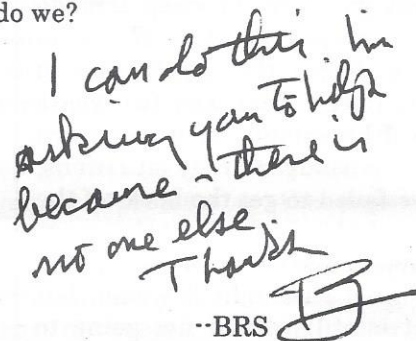 do we?
I can do this in
asking you to help
because - there is
not one else
Thanks
--BRS